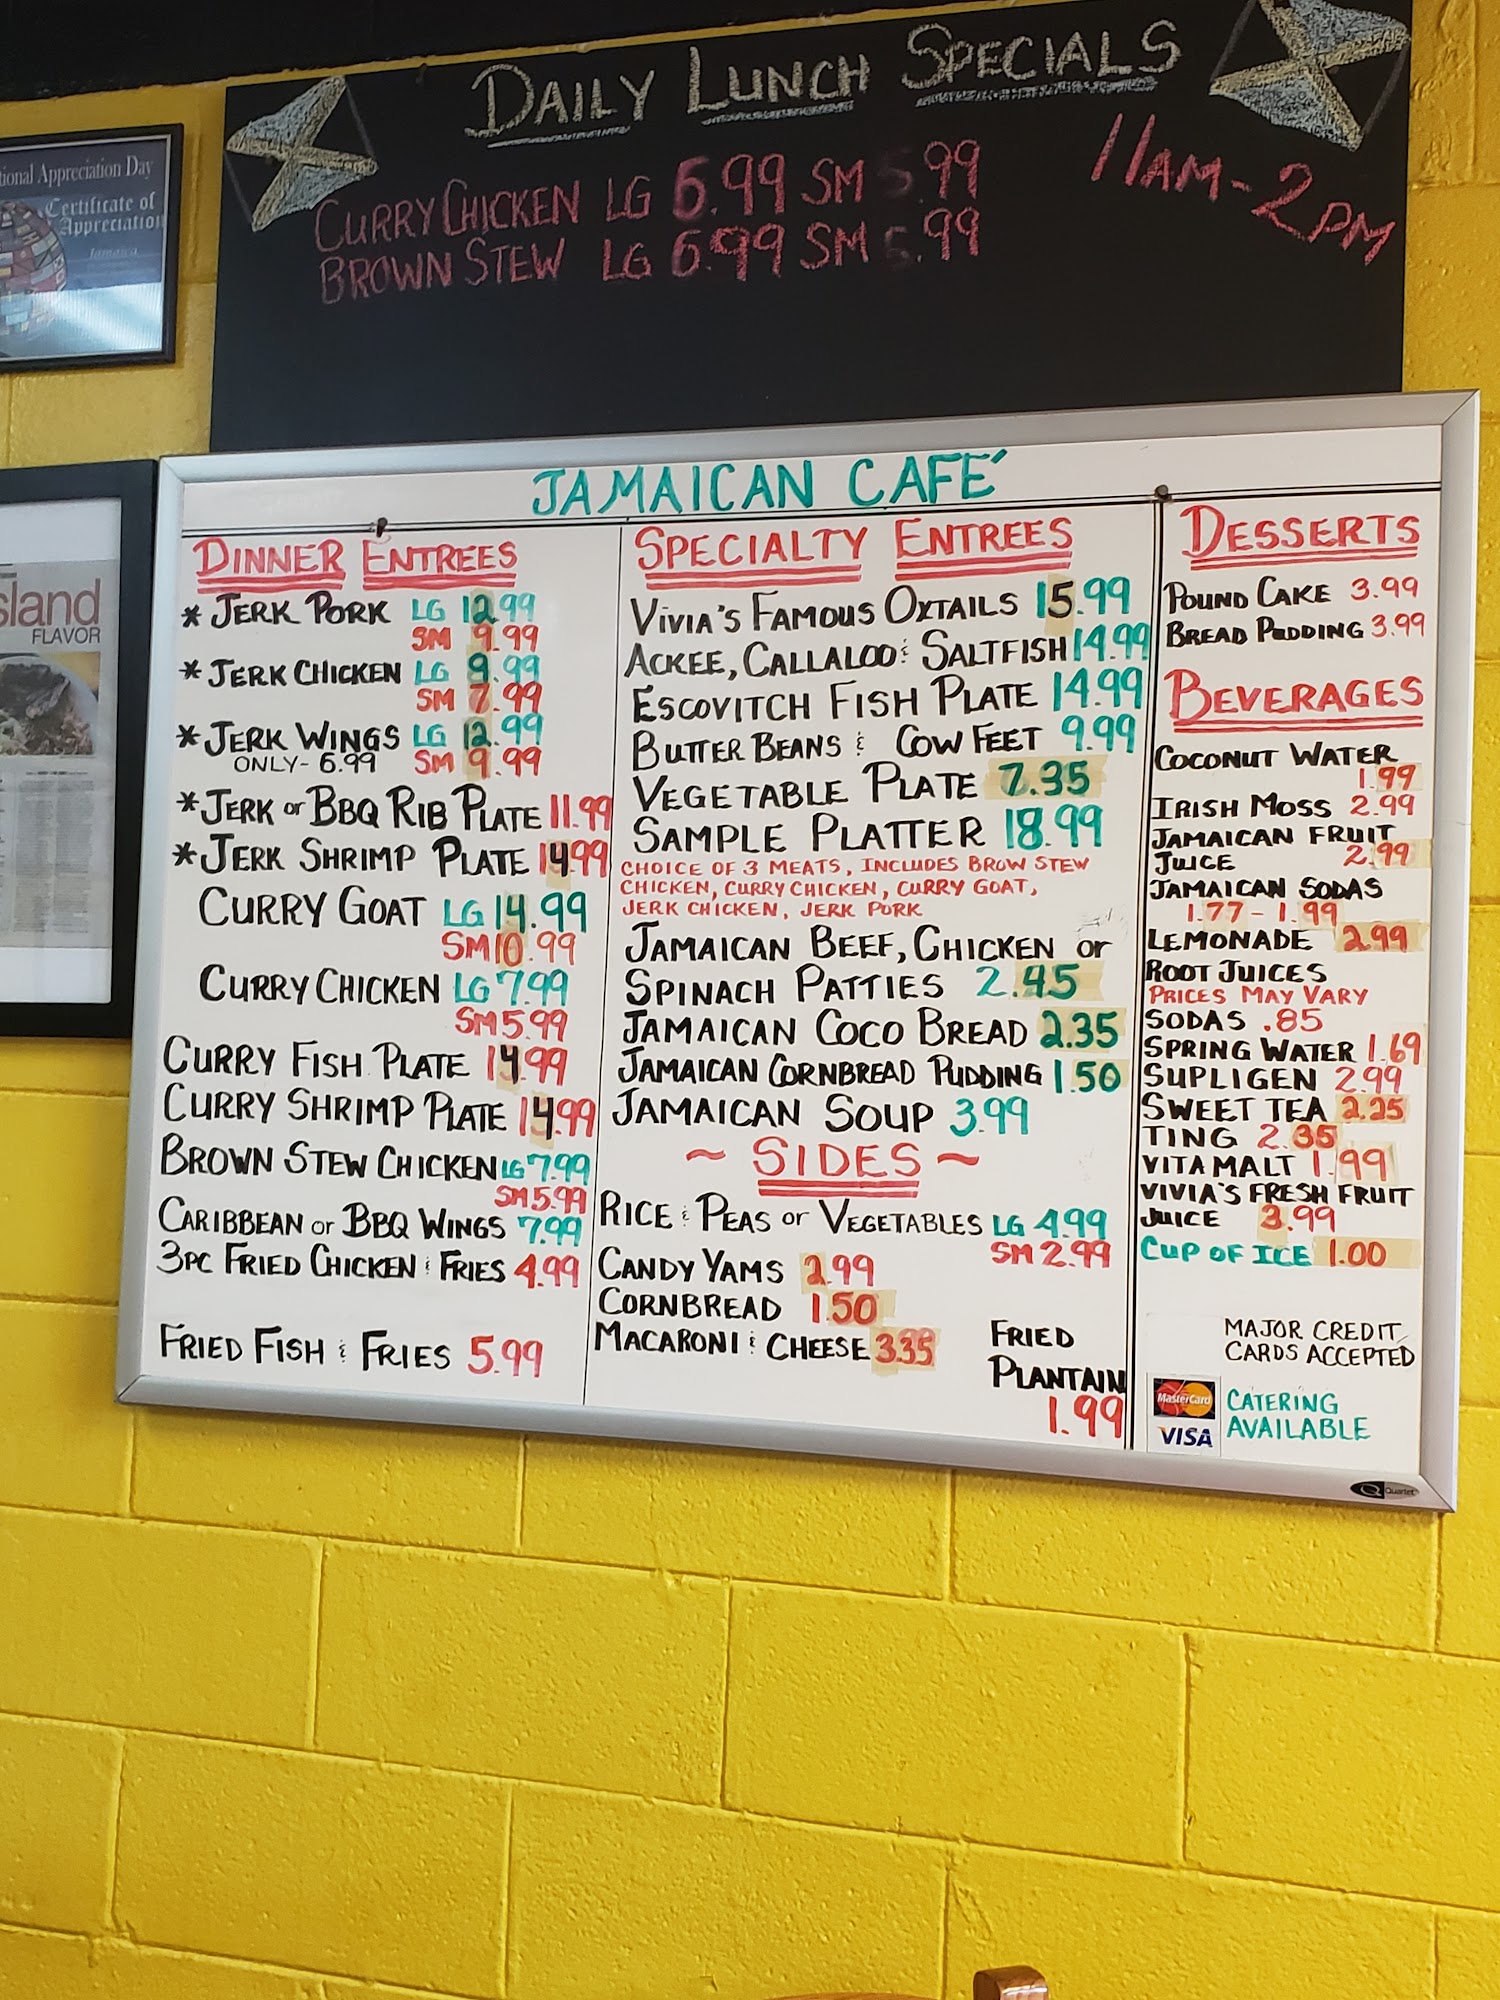 DAILY LUNCH SPECIALS
CURRY CHICKEN LG 6.99 SM 5.99
BROWN STEW LG 6.99 SM 5.99
11AM-2PM
tional Appreciation Day
Certificate of
Appreciation
Jamaica
sland
FLAVOR
JAMAICAN CAFÉ
DINNER ENTREES
* JERK PORK LG 12.99
SM 9.99
* JERK CHICKEN LG 9.99
SM 7.99
* JERK WINGS LG 12.99
ONLY- 6.99 SM 9.99
* JERK or BBQ RIB PLATE 11.99
* JERK SHRIMP PLATE 14.99
CURRY GOAT LG 14.99
SM 10.99
CURRY CHICKEN LG 7.99
SM 5.99
CURRY FISH PLATE 14.99
CURRY SHRIMP PLATE 14.99
BROWN STEW CHICKEN LG 7.99
SM 5.99
CARIBBEAN or BBQ WINGS 7.99
3PC FRIED CHICKEN & FRIES 4.99
FRIED FISH & FRIES 5.99
SPECIALTY ENTREES
VIVIA'S FAMOUS OXTAILS 15.99
ACKEE, CALLALOO & SALTFISH 14.99
ESCOVITCH FISH PLATE 14.99
BUTTER BEANS & COW FEET 9.99
VEGETABLE PLATE 7.35
SAMPLE PLATTER 18.99
CHOICE OF 3 MEATS, INCLUDES BROW STEW
CHICKEN, CURRY CHICKEN, CURRY GOAT,
JERK CHICKEN, JERK PORK
JAMAICAN BEEF, CHICKEN or
SPINACH PATTIES 2.45
JAMAICAN COCO BREAD 2.35
JAMAICAN CORNBREAD PUDDING 1.50
JAMAICAN SOUP 3.99
~ SIDES ~
RICE & PEAS or VEGETABLES LG 4.99
SM 2.99
CANDY YAMS 2.99
CORNBREAD 1.50
MACARONI & CHEESE 3.35
FRIED
PLANTAIN
1.99
DESSERTS
POUND CAKE 3.99
BREAD PUDDING 3.99
BEVERAGES
COCONUT WATER
1.99
IRISH MOSS 2.99
JAMAICAN FRUIT
JUICE 2.99
JAMAICAN SODAS
1.77 - 1.99
LEMONADE 2.99
ROOT JUICES
PRICES MAY VARY
SODAS .85
SPRING WATER 1.69
SUPLIGEN 2.99
SWEET TEA 2.25
TING 2.35
VITAMALT 1.99
VIVIA'S FRESH FRUIT
JUICE 3.99
CUP OF ICE 1.00
MAJOR CREDIT
CARDS ACCEPTED
MasterCard
VISA
CATERING
AVAILABLE
Quartet